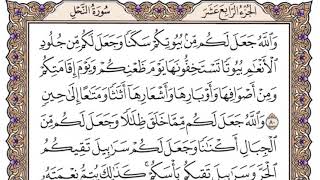 الجزء الرابع عشر
سورة النحل
وَاللَّهُ جَعَلَ لَكُم مِّنۢ بُيُوتِكُمْ سَكَنًا وَجَعَلَ لَكُم مِّن جُلُودِ
الْأَنْعَٰمِ بُيُوتًا تَسْتَخِفُّونَهَا يَوْمَ ظَعْنِكُمْ وَيَوْمَ إِقَامَتِكُمْ
وَمِنْ أَصْوَافِهَا وَأَوْبَارِهَا وَأَشْعَارِهَا أَثَٰثًا وَمَتَٰعًا إِلَىٰ حِينٍ
۝٨٠ وَاللَّهُ جَعَلَ لَكُم مِّمَّا خَلَقَ ظِلَٰلًا وَجَعَلَ لَكُم مِّنَ
الْجِبَالِ أَكْنَٰنًا وَجَعَلَ لَكُمْ سَرَٰبِيلَ تَقِيكُمُ
الْحَرَّ وَسَرَٰبِيلَ تَقِيكُم بَأْسَكُمْ كَذَٰلِكَ يُتِمُّ نِعْمَتَهُۥ